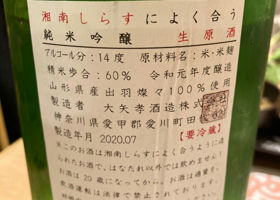 湘南しらすによく合う
純米吟醸 生原酒
アルコール分：14度 原材料名：米・米麹
精米歩合：60% 令和元年度醸造
山形県産出羽燦々100%使用
製造者 大矢孝酒造株式会社
神奈川県愛甲郡愛川町田代
製造年月 2020.07 【要冷蔵】
※このお酒は湘南しらすによく合うように造
られたお酒で、はなたれ以外では飲めません！
お酒は20歳になってから。お酒は適量を。
飲酒運転は法律で禁止されています。